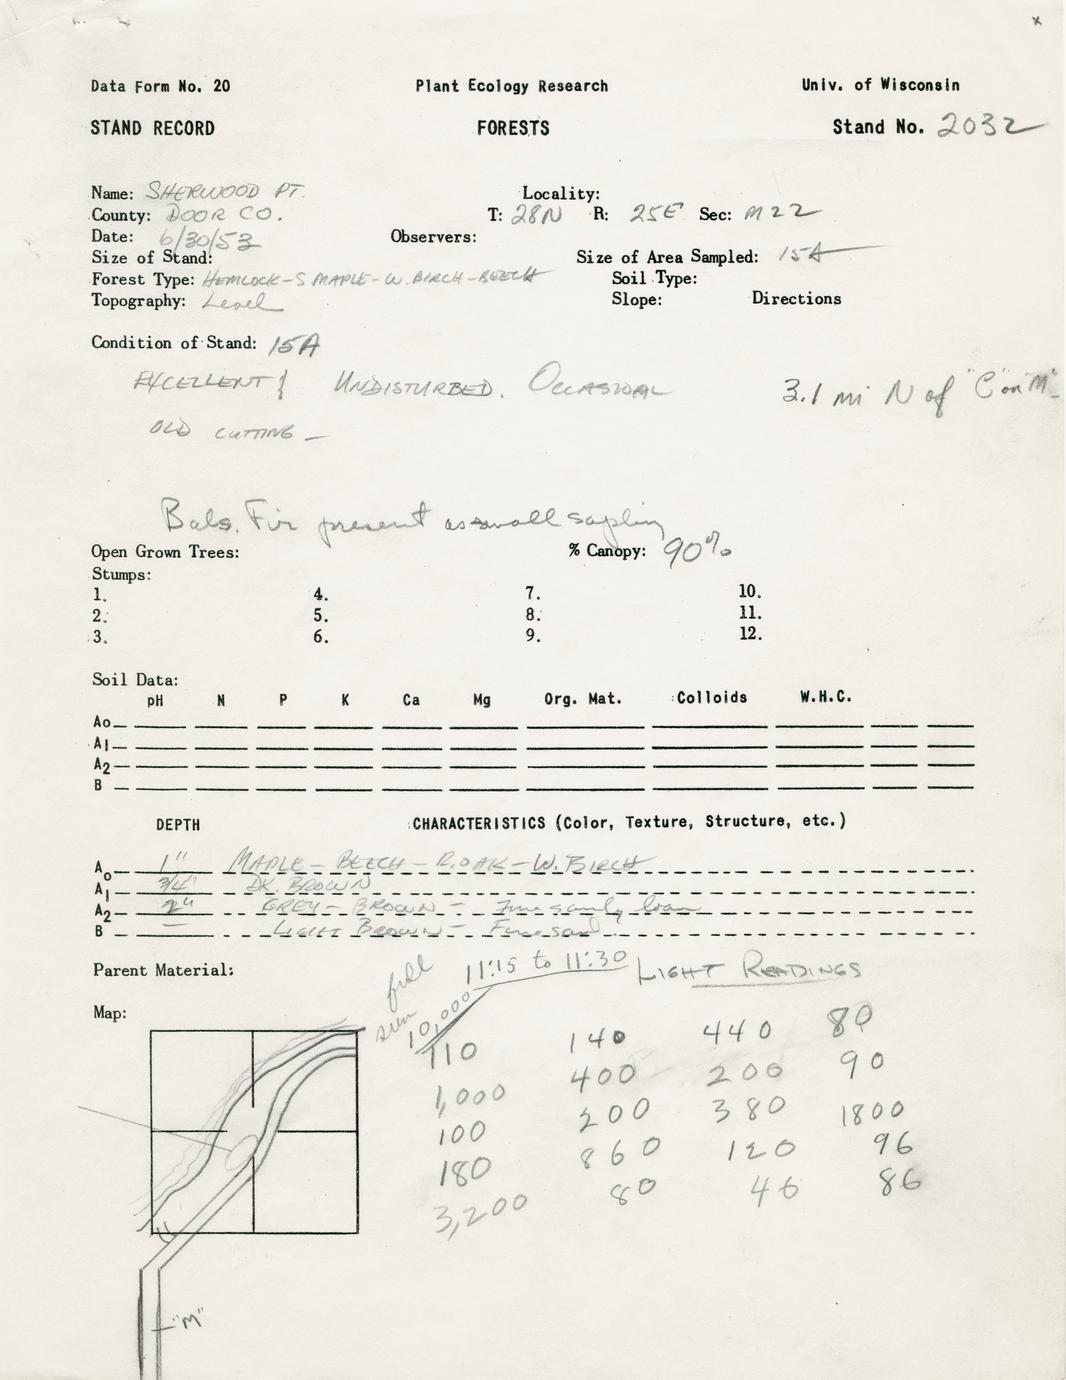 x
Data Form No. 20 Plant Ecology Research Univ. of Wisconsin
STAND RECORD FORESTS Stand No. 2032
Name: SHERWOOD PT. Locality:
County: DOOR CO. T: 28N R: 25E Sec: M22
Date: 6/30/53 Observers:
Size of Stand: Size of Area Sampled: 15A
Forest Type: HEMLOCK-S MAPLE-W.BIRCH-BEECH Soil Type:
Topography: Level Slope: Directions
Condition of Stand: 15A
EXCELLENT UNDISTURBED. OCCASIONAL 3.1 mi N of "C" on "M"
OLD CUTTING -
Bals. Fir present as small sapling
Open Grown Trees: % Canopy: 90%
Stumps:
1. 4. 7. 10.
2. 5. 8. 11.
3. 6. 9. 12.
Soil Data:
pH N P K Ca Mg Org. Mat. Colloids W.H.C.
Ao
A1
A2
B
DEPTH CHARACTERISTICS (Color, Texture, Structure, etc.)
Ao 1" MAPLE-BEECH-R.OAK-W.BIRCH
A1 3/4" DK. BROWN
A2 2" GREY-BROWN - Fine sandy loam
B - LIGHT BROWN - Fine sand
Parent Material: 11:15 to 11:30 LIGHT READINGS
full sun 10,000
Map:
110 140 440 80
1,000 400 200 90
100 200 380 1800
180 860 120 96
3,200 80 46 86
"M"